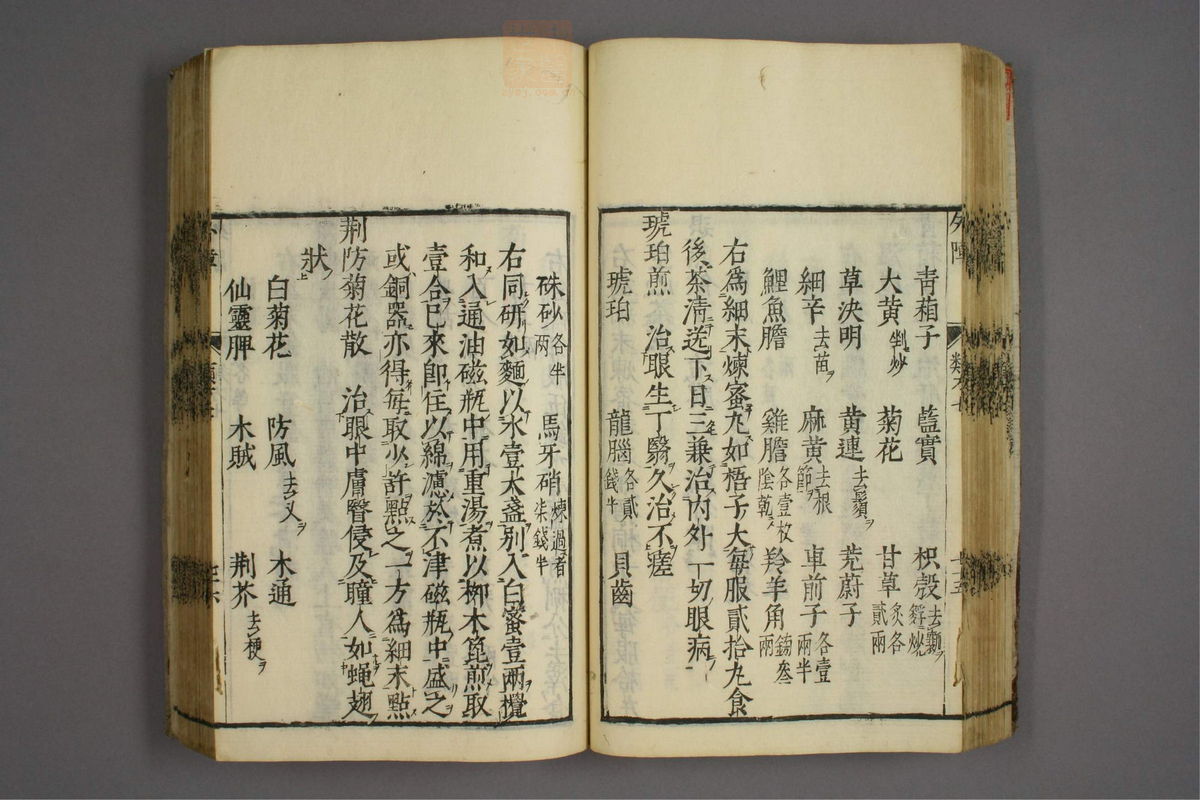 青葙子　藍實　枳殼去穰麩炒
大黃剉炒　菊花　甘草炙各貳兩
草決明　黃連去鬚　茺蔚子
細辛去苗　麻黃去根節　車前子各壹兩半
鯉魚膽　雞膽各壹枚陰乾　羚羊角鎊叁兩
右爲細末煉蜜丸如梧子大每服貳拾丸食
後茶清送下日三兼治內外一切眼病
琥珀煎　治眼生丁翳久治不瘥
琥珀　龍腦各貳錢半　貝齒
硃砂各半兩　馬牙硝煉過者柒錢半
右同研如麵以水壹大盞別入白蜜壹兩攪
和入通油磁瓶中用重湯煮以柳木篦煎取
壹合已來即住以綿濾於不津磁瓶中盛之
或銅器亦得每取少許點之一方爲細末點
荆防菊花散　治眼中膚瞖侵及瞳人如蠅翅
狀
白菊花　防風去叉　木通
仙靈脾　木賊　荆芥去梗